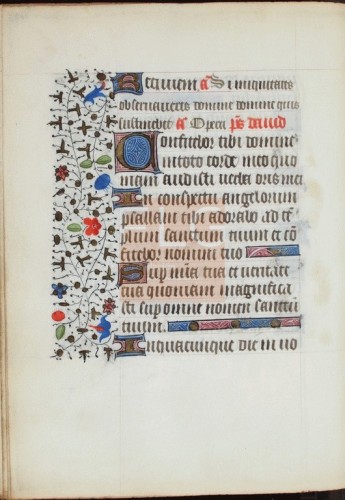 Requiem. a. Si iniquitates
observaveris domine domine quis
sustinebit a. Opera ps. david
Confitebor tibi domine
in toto corde meo quo
niam audisti verba oris mei
In conspectu angelorum
psallam tibi adorabo ad tē
plum sanctum tuum et con
fitebor nomini tuo
Sup mīa tua et veritate
tua quoniam magnifica
sti sup omne nomen sanctū
tuum.
In quacunque die in vo